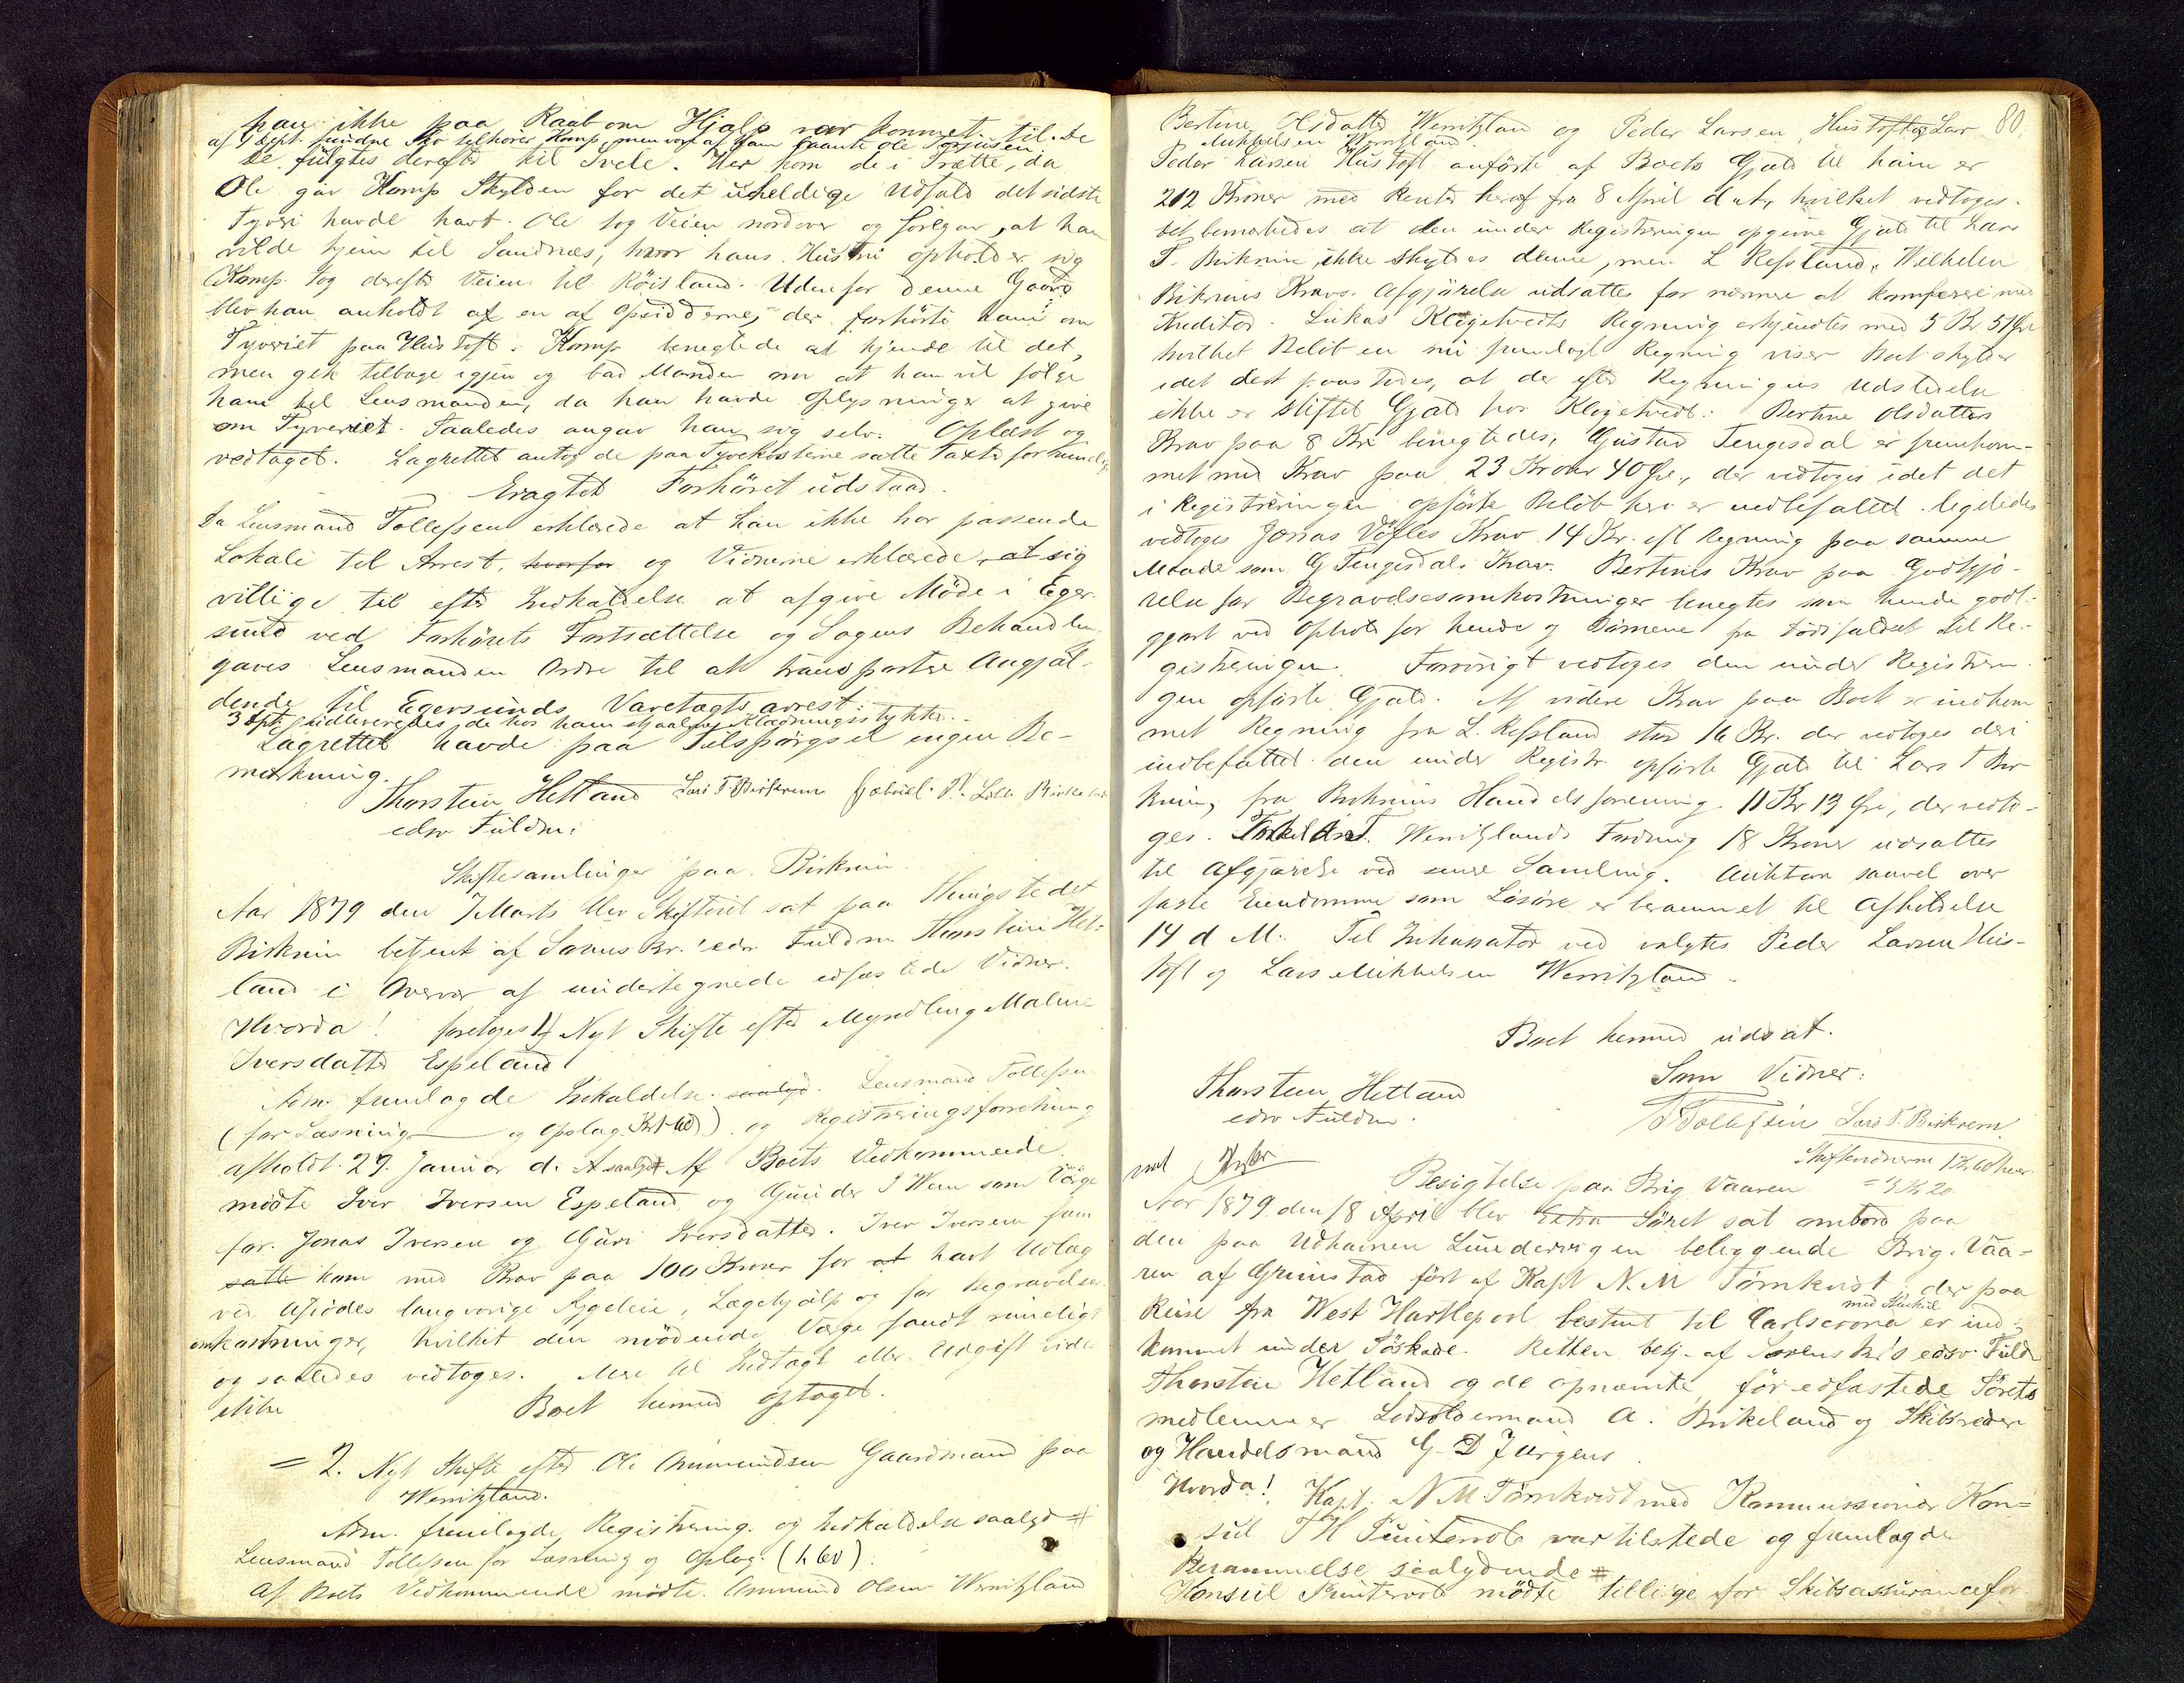 han ikke paa Raab om Hjælp var kommet til. De
af 1 Sept. fundne Sko tilhører Kamp, men vare af ham laante Ole Torjusen.
se fulgtes derefter til Tvele. Her kom de i Trætte, da
Ole gav Kamp Skylden for det uheldige Udfald det sidste
Tyveri havde havt. Ole tog Veien nordover og foregav, at han
vilde hjem til Sandnæs, hvor hans Hustru opholder sig
Kamp tog derefter Veien til Röisland. Udenfor denne Gaard
blev han anholdt af en af Opsidderne, der forhörte ham om
Tyveriet paa Hustoft. Kamp benegtede at kjende til det,
men gik tilbage igjen og bad Manden om at han vil følge
ham til Lensmanden, da han havde Oplysninger at give
om Tyveriet. Saaledes angav han sig selv. Oplæst og
vedtaget. Lagrettet antog de paa Tyvekosterne satte Taxter for rimelige
Eragtet Forhöret udstaar.
Da Lensmand Tollefsen erklærede at han ikke har passende
Lokale til Arrest, hvorfor og Vidnerne erklærede at sig
villige til efter Indkaldelse at afgive Møde i Eger-
sund ved Forhørets Fortsættelse og Sagens Behandling
gaves Lensmanden Ordre til at transportere Angjæl-
dende til Egersunds Varetægtsarrest.
3 Spt. udleveredes de hos ham stjaalne Klædningsstykker.
Lagrettet havde paa Tilspørgsel ingen Be-
mærkning.
Thorstein Hetland Lars T. Birkrem Gabriel P. Lille Birkeland
edsv Fuldm:
Skiftesamlinger paa Birkrem
Aar 1879 den 7 Marts blev Skifteret sat paa Thingstedet
Birkrem betjent af Sorenskr. edsv. Fuldm Thorstein Het-
land i Overvær af undertegnede edfæstede Vidner.
Hvorda! foretoges 1) Nyt Skifte efter Myndling Malene
Iversdatter Espeland
Adm. fremlagde Indkaldelse saalyd. Lensmand Tollefsen
(for Læsning og Opslag Kr 1 60) og Registreringsforretning
afholdt 29. Januar d. A saalyd # Af Boets Vedkommende
mødte Iver Iversen Espeland og Gunder I Wem som Værge
for Jonas Iversen og Guri Iversdatter. Iver Iversen fam
satte kom med Krav paa 100 Kroner for at havt Udlæg
ved Afdödes langvarige Sygeleie, Lægehjælp og for Begravelses
omkostninger, hvilket den mødende Værge fandt rimeligt
og saaledes vedtoges. Mere til Indtægt eller Udgift vides
ikke Boet hermed optaget.
= 2. Nyt Skifte efter Ole Ommundsen Gaardmand paa
Werritzland.
Adm. fremlagde Registrering og Indkaldelse saalyd #
Lensmand Tollefsen for Læsning og Opslag. (1. 60).
Af Boets Vedkommende mødte Ommund Olsen Werritzland
80.
Bertine Olsdatter Werritzland og Peder Larsen Hustoft og Lars
Mikkelsen Werritzland.
Peder Larsen Hustoft anførte af Boets Gjæld til ham er
212 Kroner med Renter heraf fra 8 April d A, hvilket vedtoges.
Det bemærkedes at den under Registreringen opgivne Gjæld til Lars
T. Birkrem ikke skyldes denne, men L Refsland. Wilhelm
Birkrems Kravs Afgjørelse udsattes for nærmere at konferere med
Kreditor. Lukas Klogetvedts Regning erkjendtes med 5 Kr 51 Øre
hvilket Beløb en nu fremlagt Regning viser Boet skylder
idet det paastodes, at der efter Regningens Udstedelse
ikke er stiftet Gjæld hos Klogetvedt. Bertine Olsdatters
Krav paa 8 Kr benegtedes, Gustav Tengesdal er fremkom-
met med Krav paa 23 Kroner 40 Øre, der vedtoges idet det
i Registreringen opførte Beløb heri er indbefattet. ligeledes
vedtoges Jonas Vöfles Krav 14 Kr. efter Regning paa samme
Maade som G Tengesdals Krav. Bertines Krav paa Godtgjö-
relse for Begravelsesomkostninger benegtes som hende godt-
gjort ved Ophold for hende og Børnene fra Dödsfaldet til Re-
gistreringen. Forøvrigt vedtoges den under Registrerin-
gen opførte Gjæld. Af videre Krav paa Boet er indkom
met Regning fra L. Refsland stor 16 Kr. der vedtoges deri
indbefattet den under Registr. opførte Gjæld til Lars T Bir
krem, fra Birkrems Handelsforening 11 Kr 13 Øre, der vedto-
ges. Torkel Ant. Werritzlands Fordring 18 Kroner udsattes
til Afgjørelse ved senere Samling. Auktion saavel over
faste Eiendomme som Løsøre er berammet til Afholdelse
14 d M. Til Inkassator ved valgtes Peder Larsen Hus-
toft og Lars Mikkelsen Werritzland.
Boet hermed udsat.
Thorstein Hetland Som Vidner:
edsv Fuldm. T Tollefsen Lars T. Birkrem
Skiftevidnerne 1 Kr 60 hver
= 3 Kr 20
Besigtelse paa Brig Vaaren
Aar 1879 den 18 April blev Extra Söret sat ombord paa
den paa Udhavnen Lundevigen beliggende Brig. Vaa-
ren af Grimstad ført af Kapt N. M Törnkvist, der paa
Reise fra West Hartlepool bestemt til Carlscrona er ind-
med Stenkul
kommet under Söskade. Retten betj. af Sorenskr's edsv. Fuldm
Thorstein Hetland og de opnævnte før edfæstede Sörets
medlemmer Lodsoldermand A. Birkeland og Skibsreder
og Handelsmand G. D Jürgens.
Hvorda! Kapt. N M Törnkvist med Kommissionær Kon-
sul T H Puntervold var tilstede og fremlagde
Berammelse saalydende #
Konsul Puntervold mödte tillige for Skibsassuranceför